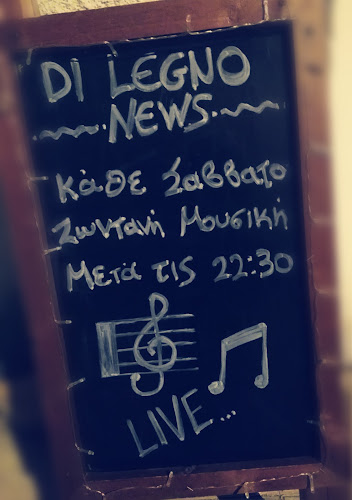 DI LEGNO
NEWS
κάθε Σαββατο
Ζωντανή Μουσική
Μετά τις 22:30
LIVE...